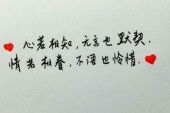 心若相知，无言也默契，
情若相眷，不语也怜惜。